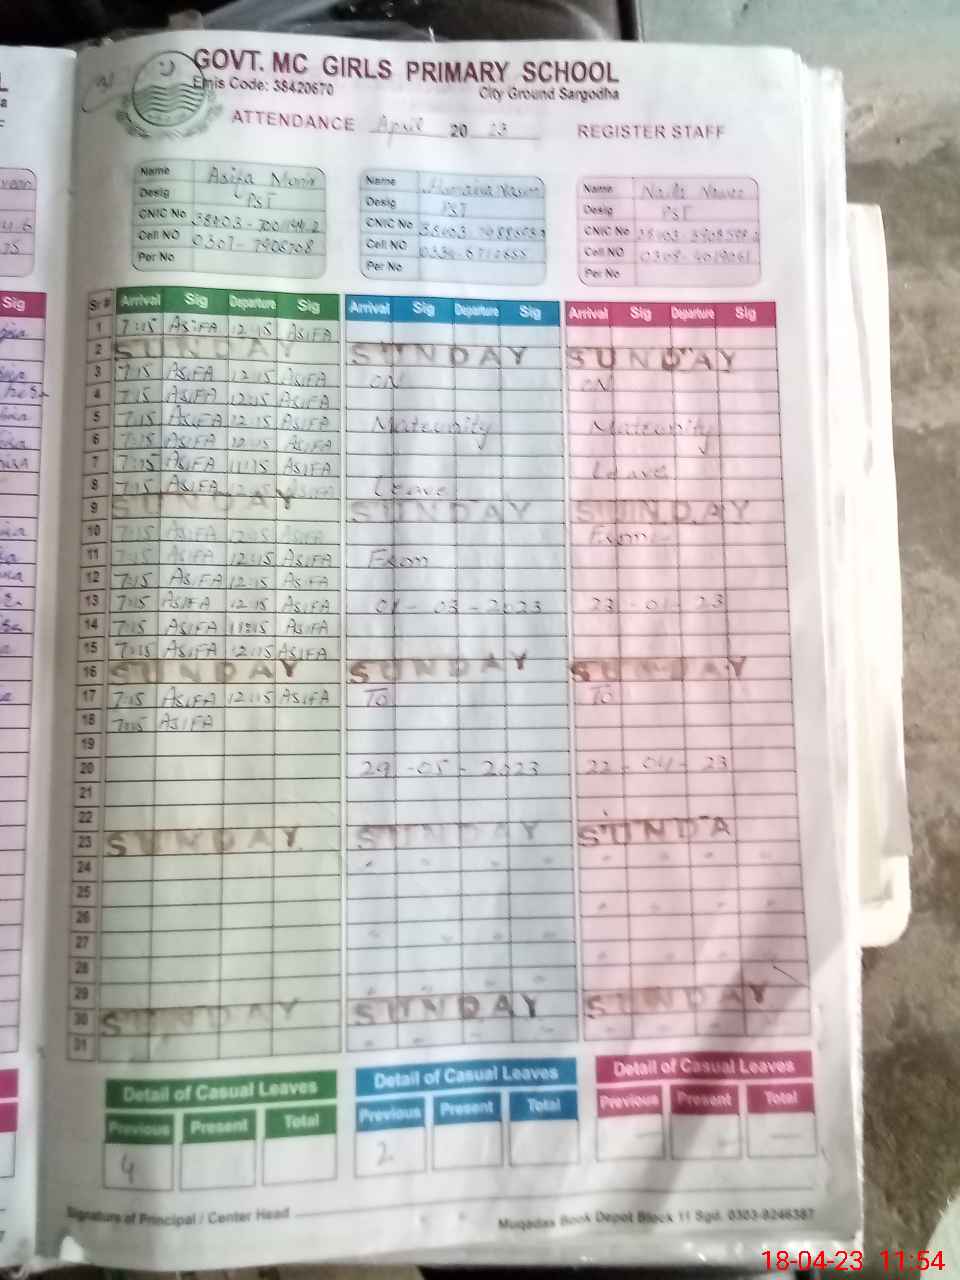 GOVT. MC GIRLS PRIMARY SCHOOL
Emis Code: 38420670 City Ground Sargodha
ATTENDANCE April 2023 REGISTER STAFF
Name Asifa Munir
Desig PST
CNIC No
Cell NO 0307-7908708
Per No
Name Humaira
Desig PST
CNIC No
Cell NO
Per No
Name Naila
Desig PST
CNIC No
Cell NO
Per No
Sig
Sr # Arrival Sig Departure Sig Arrival Sig Departure Sig Arrival Sig Departure Sig
1 7:15 ASIFA 12:15 ASIFA
2 SUNDAY SUNDAY SUNDAY
3 7:15 ASIFA 12:15 ASIFA ON ON
4 7:15 ASIFA 12:15 ASIFA
5 7:15 ASIFA 12:15 ASIFA Maternity Maternity
6 7:15 ASIFA 12:15 ASIFA
7 7:15 ASIFA 11:15 ASIFA Leave
8 7:15 ASIFA 12:15 ASIFA Leave
9 SUNDAY SUNDAY SUNDAY
10 7:15 ASIFA 12:15 ASIFA From
11 7:15 ASIFA 12:15 ASIFA From
12 7:15 ASIFA 12:15 ASIFA
13 7:15 ASIFA 12:15 ASIFA 01-03-2023 23-01-23
14 7:15 ASIFA 11:15 ASIFA
15 7:15 ASIFA 12:15 ASIFA
16 SUNDAY SUNDAY SUNDAY
17 7:15 ASIFA 12:15 ASIFA To To
18 7:15 ASIFA
19
20 29-05-2023 22-04-23
21
22
23 SUNDAY SUNDAY SUNDA
24
25
26
27
28
29
30 SUNDAY SUNDAY SUNDAY
31
Detail of Casual Leaves Detail of Casual Leaves Detail of Casual Leaves
Previous Present Total Previous Present Total Previous Present Total
4 2
Signature of Principal / Center Head
Muqadas Book Depot Block 11 Sgd. 0303-9246387
18-04-23 11:54